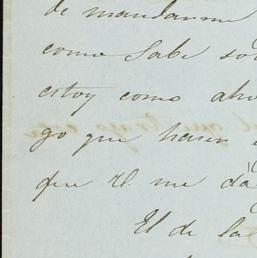 de mandarme
como Sabe so
estoy como aho
go que hacer
que U. me da
El de la